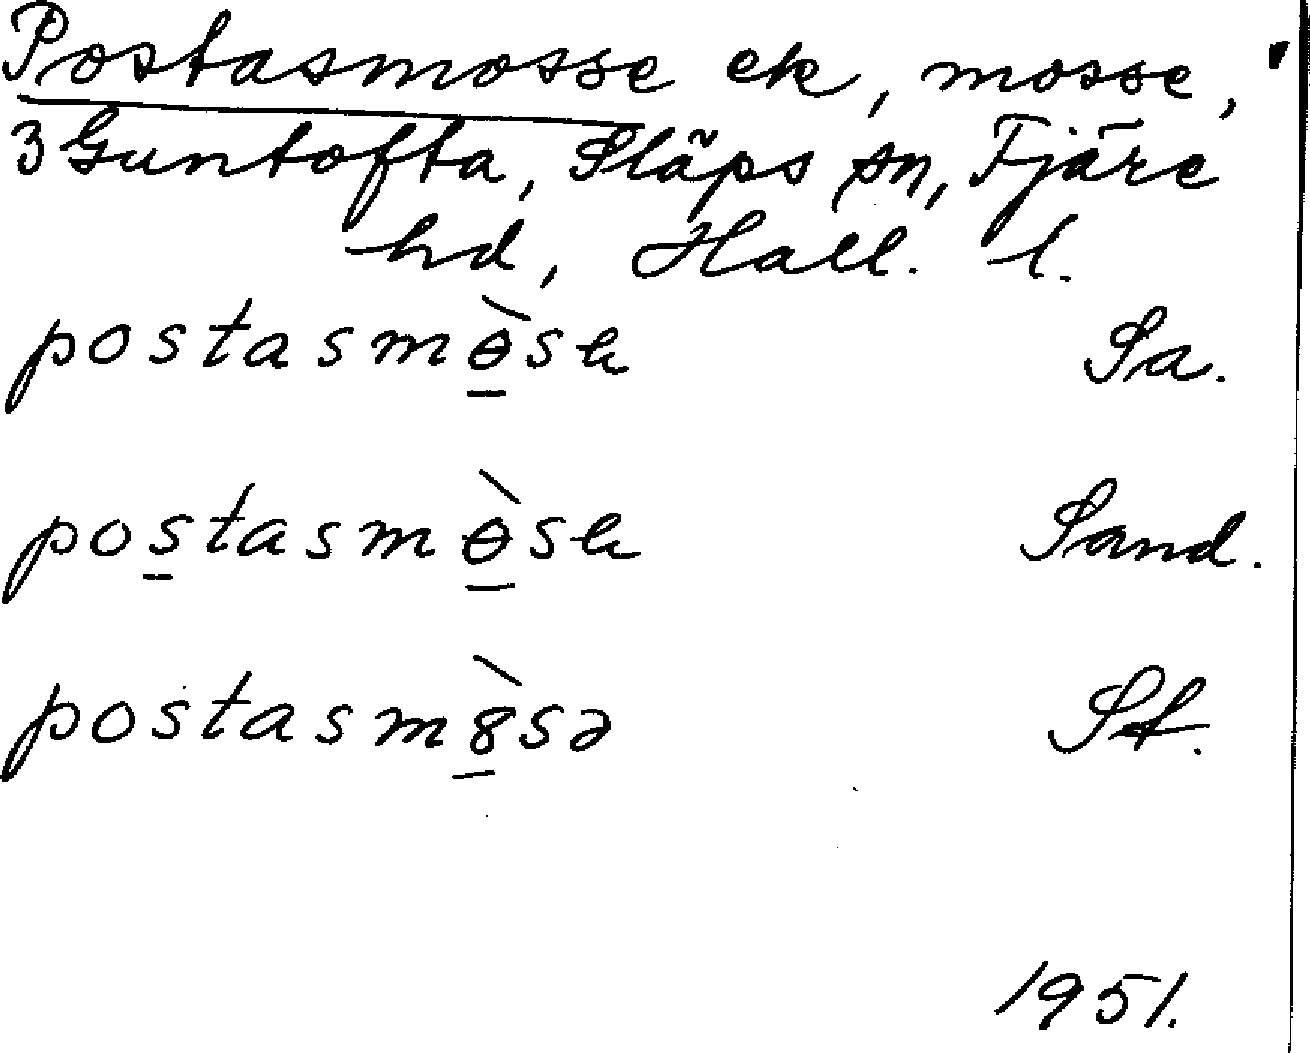 Postasmosse ek, mosse,
3 Guntofta, Släps sn, Fjäre
hd, Hall. l.
postasmɵ̀sa Sa.
postasmɵ̀sa Sand.
postasm8̀sə St.
1951.